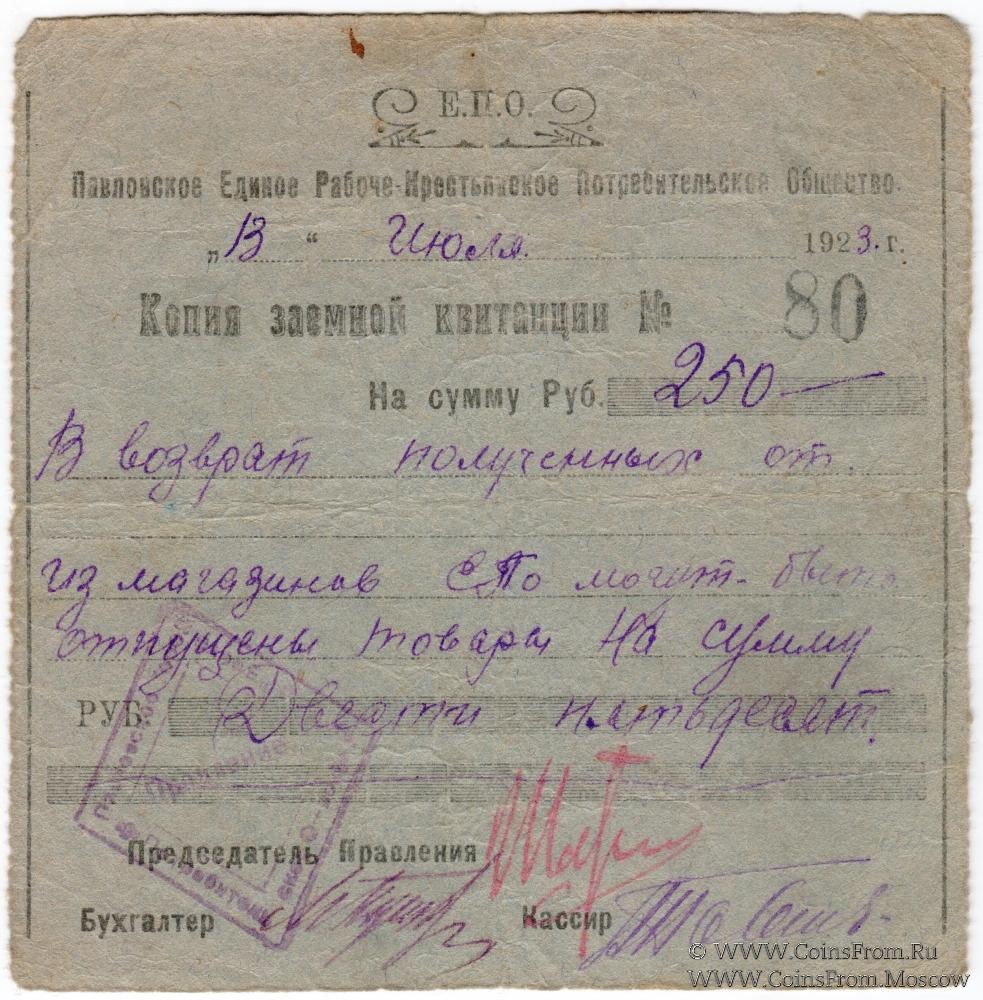 Е.П.О.
Павловское Единое Рабоче-Крестьянское Потребительское Общество.
„13“ Июля 1923. г.
Копия заемной квитанции № 80
На сумму Руб. 250 —
В возврат полученных от.
из магазинов ЕПО могут быть
отпущены товары на сумму
РУБ. Двести пятьдесят.
Правление
Председатель Правления
Бухгалтер Кассир
© WWW.CoinsFrom.Ru
© WWW.CoinsFrom.Moscow